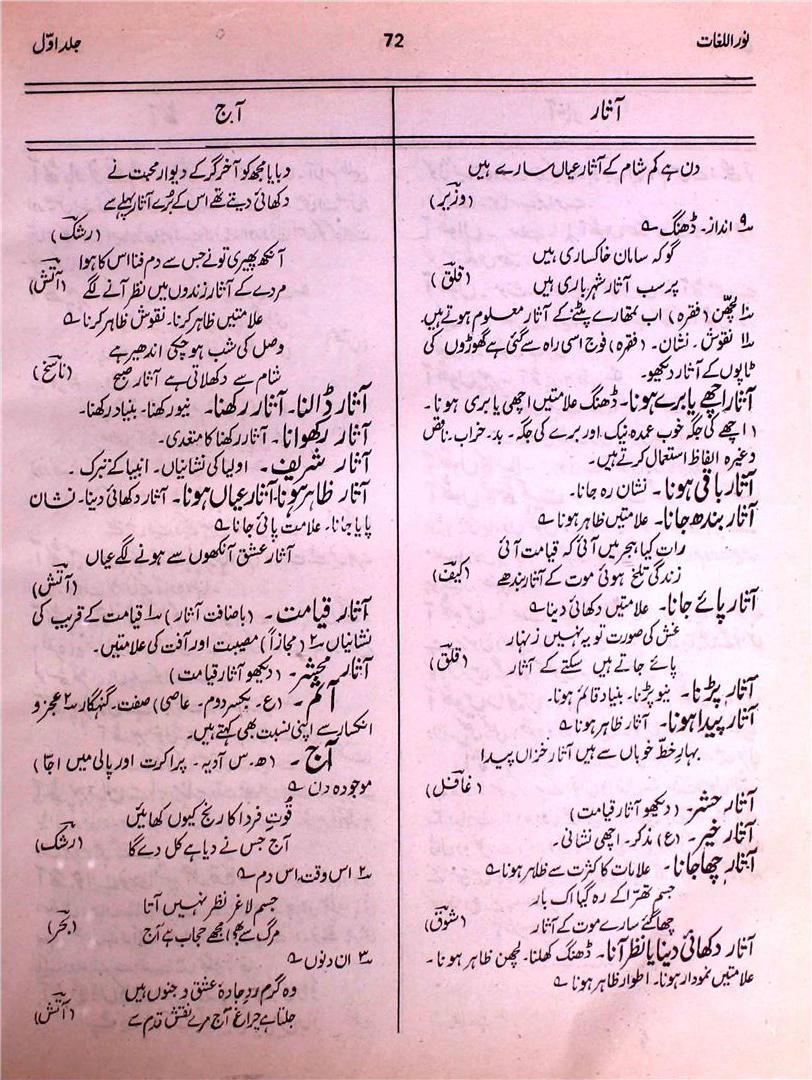 نور اللغات
72
جلد اوّل
آثار
دن ہے کم شام کے آثار عیاں سارے ہیں
(وزیر)
۹ انداز۔ ڈھنگ ؎
گو کہ سامان خاکساری ہیں
پر سب آثار شہریاری ہیں (قلق)
۱۰ لچھن (فقرہ) اب تمھارے پٹنے کے آثار معلوم ہوتے ہیں۔
۱۱ نقوش۔ نشان۔ (فقرہ) فوج اسی راہ سے گئی ہے گھوڑوں کی
ٹاپوں کے آثار دیکھو۔
آثار اچھے یا برے ہونا۔ ڈھنگ علامتیں اچھی یا بری ہونا۔
۱ اچھے کی جگہ خوب عمدہ نیک اور برے کی جگہ۔ بد۔ خراب۔ ناقص
وغیرہ الفاظ استعمال کرتے ہیں۔
آثار باقی ہونا۔ نشان رہ جانا۔
آثار بندھ جانا۔ علامتیں ظاہر ہونا ؎
رات کیا ہجر میں آئی کہ قیامت آئی
زندگی تلخ ہوئی موت کے آثار بندھے (کیف)
آثار پائے جانا۔ علامتیں دکھائی دینا ؎
غش کی صورت تو یہ نہیں زنہار
پائے جاتے ہیں سکتے کے آثار (قلق)
آثار پڑنا۔ نیو پڑنا۔ بنیاد قائم ہونا۔
آثار پیدا ہونا۔ آثار ظاہر ہونا ؎
بہارِ خطّ خوباں سے ہیں آثار خزاں پیدا
(غافل)
آثار حشر۔ (دیکھو آثار قیامت)
آثار خیر۔ (ع) مذکر۔ اچھی نشانی۔
آثار چھا جانا۔ علامات کا کثرت سے ظاہر ہونا ؎
جسم تھرّا کے رہ گیا اک بار
چھا گئے سارے موت کے آثار (شوق)
آثار دکھائی دینا یا نظر آنا۔ ڈھنگ کھلنا۔ لچھن ظاہر ہونا۔
علامتیں نمودار ہونا۔ اطوار ظاہر ہونا ؎
آج
دبایا مجھ کو آخر گر کے دیوار محبت نے
دکھائی دیتے تھے اس کے بُرے آثار پہلے سے
(رشک)
آنکھ پھیری تو نے جس سے دم فنا اس کا ہوا
مردے کے آثار زندوں میں نظر آنے لگے (آتش)
علامتیں ظاہر کرنا۔ نقوش ظاہر کرنا ؎
وصل کی شب ہو چکی اندھیر ہے
شام سے دکھلاتی ہے آثار صبح (ناسخ)
آثار ڈالنا۔ آثار رکھنا۔ نیو رکھنا۔ بنیاد رکھنا۔
آثار رکھوانا۔ آثار رکھنا کا متعدی۔
آثار شریف۔ اولیا کی نشانیاں۔ انبیا کے تبرک۔
آثار ظاہر ہونا۔ آثار عیاں ہونا۔ آثار دکھائی دینا۔ نشان
پایا جانا۔ علامت پائی جانا ؎
آثار عشق آنکھوں سے ہونے لگے عیاں
(آتش)
آثار قیامت۔ (باضافت آثار) ۱ قیامت کے قریب کی
نشانیاں ۲ (مجازاً) مصیبت اور آفت کی علامتیں۔
آثار محشر۔ (دیکھو آثار قیامت)
آثم۔ (ع۔ بکسر دوم۔ عاصی) صفت۔ گنہگار ۲ عجز و
انکسار سے اپنی نسبت بھی کہتے ہیں۔
آج۔ (ھ۔ س آدیہ۔ پراکرت اور پالی میں اجّا)
موجودہ دن ؎
قُوتِ فردا کا رنج کیوں کھائیں
آج جس نے دیا ہے کل دے گا (رشک)
۲ اس وقت، اس دم ؎
جسم لاغر نظر نہیں آتا
مرگ سے بھی مجھے حجاب ہے آج (بحر)
۳ ان دنوں ؎
وہ گرم رو جادۂ عشق و جنوں ہیں
جلتا ہے چراغ آج مرے نقش قدم سے (آتش)